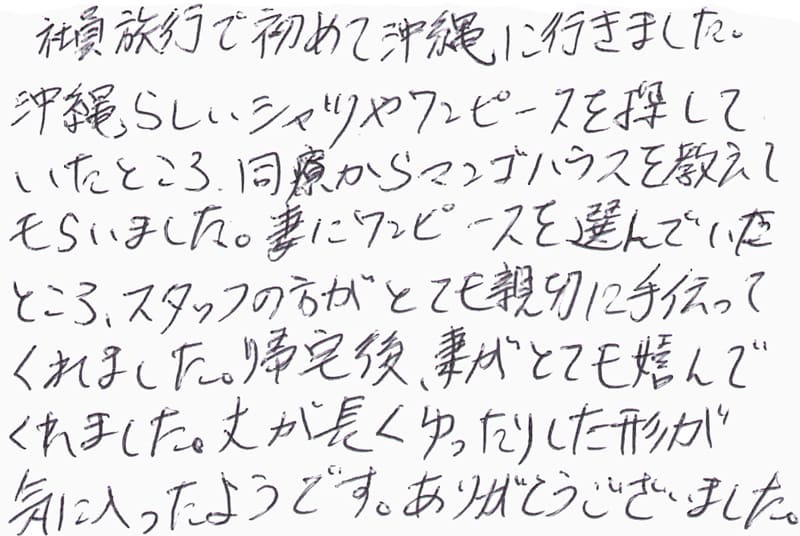 社員旅行で初めて沖縄に行きました。
沖縄らしいシャツやワンピースを探して
いたところ、同僚からマンゴハウスを教えて
もらいました。妻にワンピースを選んでいた
ところ、スタッフの方がとても親切に手伝って
くれました。帰宅後、妻がとても嬉んで
くれました。丈が長くゆったりした形が
気に入ったようです。ありがとうございました。